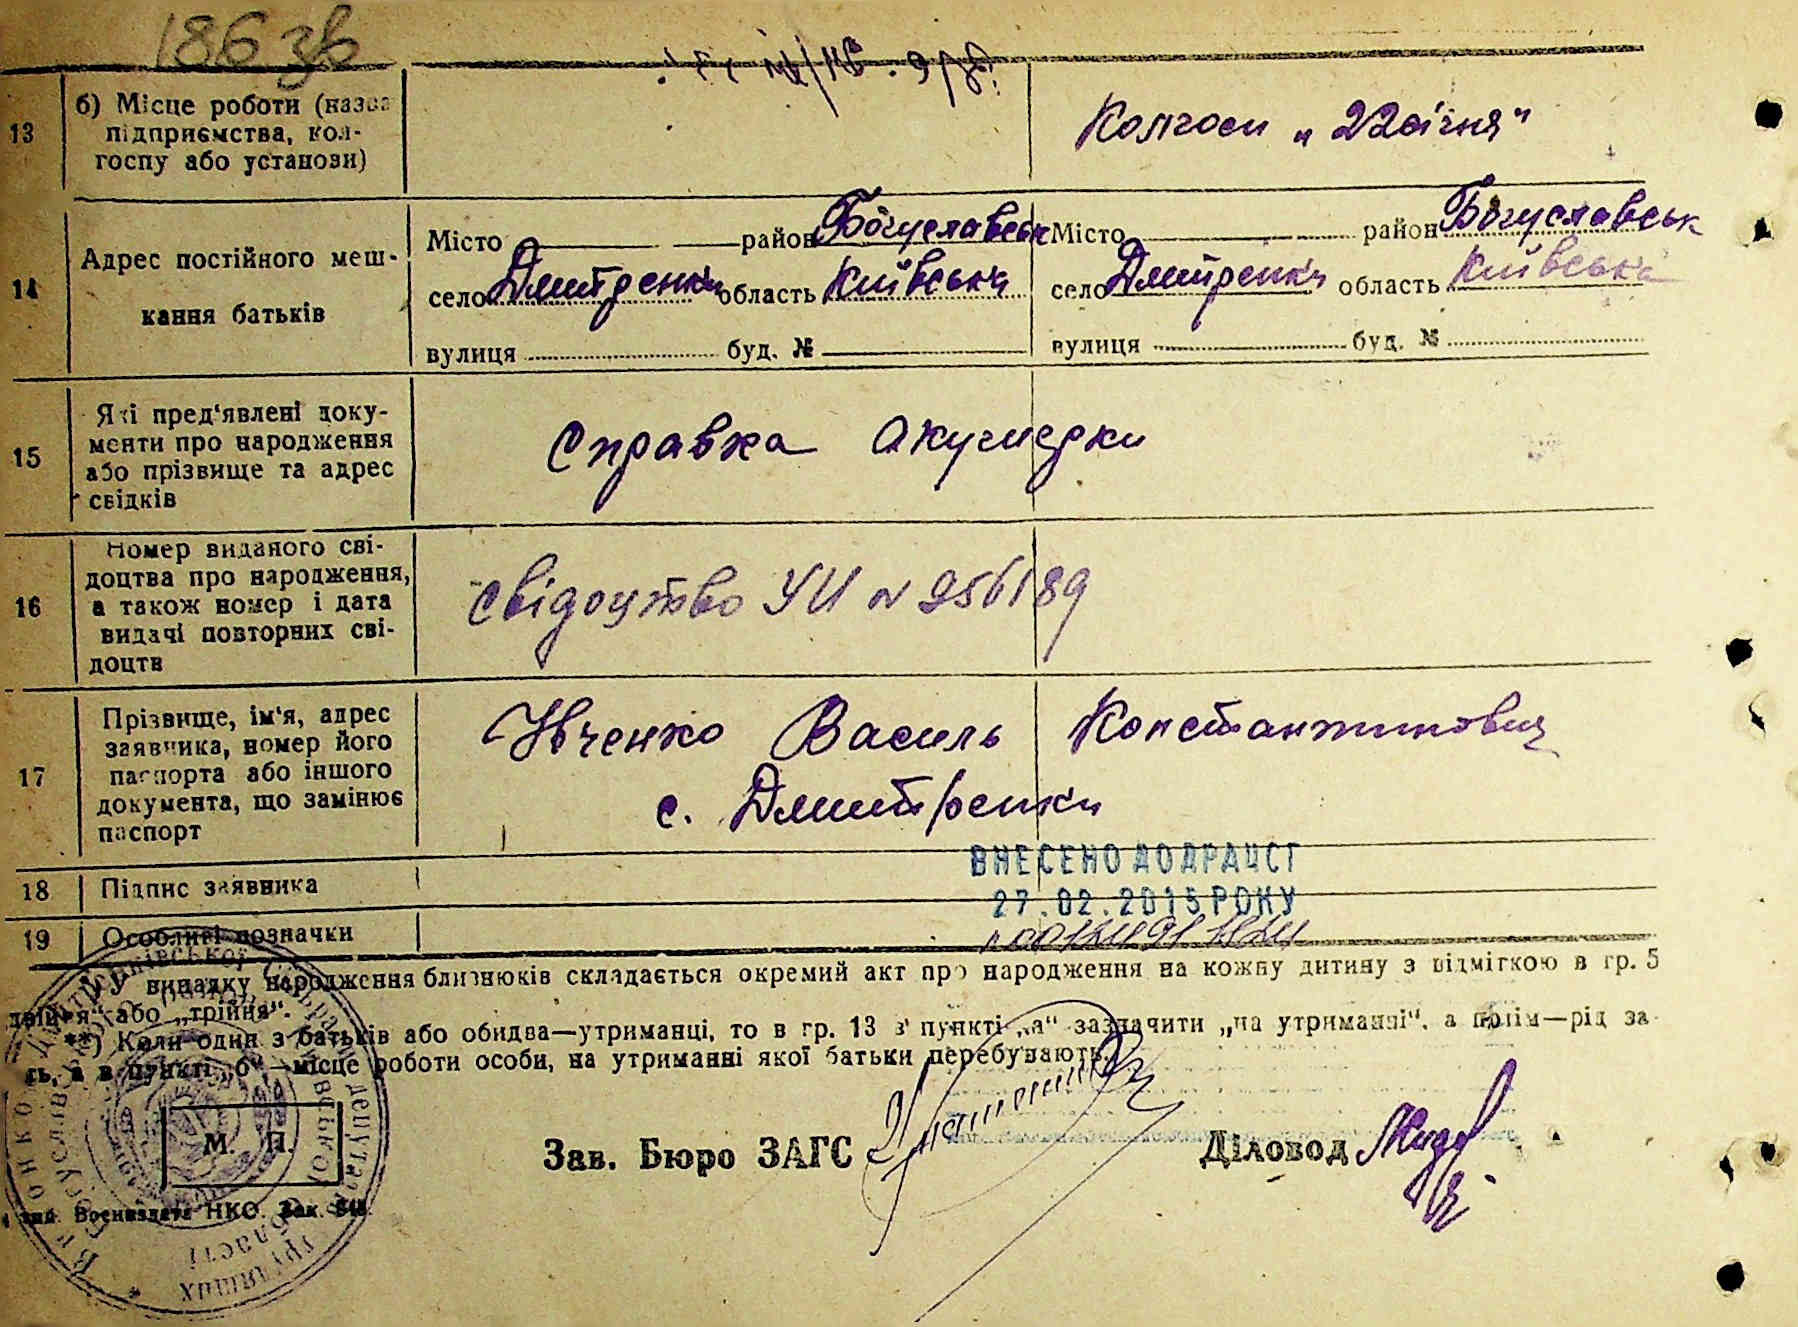 186 зв
13
б) Місце роботи (назва підприємства, колгоспу або установи)
Колгосп „22 січня"
14
Адрес постійного мешкання батьків
Місто район Богуславськ
село Дмитренки область Київська
вулиця буд. №
Місто район Богуславськ
село Дмитренки область Київська
вулиця буд. №
15
Які пред'явлені документи про народження або прізвище та адрес свідків
Справка Акушерки
16
Номер виданого свідоцтва про народження, а також номер і дата видачі повторних свідоцтв
Свідоцтво УИ № 256189
17
Прізвище, ім'я, адрес заявника, номер його паспорта або іншого документа, що замінює паспорт
Ивченко Василь Константинович
с. Дмитренки
18
Підпис заявника
ВНЕСЕНО ДО ДРАЦСГ
27.02.2015 РОКУ
19
Особливі позначки
У випадку народження близнюків складається окремий акт про народження на кожну дитину з відміткою в гр. 5
двійня" або „трійня".
**) Коли один з батьків або обидва—утриманці, то в гр. 13 в пункті „а" зазначити „на утриманні", а потім—рід за-
ть, а в пункті „б"—місце роботи особи, на утриманні якої батьки перебувають.
М. П.
Зав. Бюро ЗАГС
Діловод
НКО. Зак.